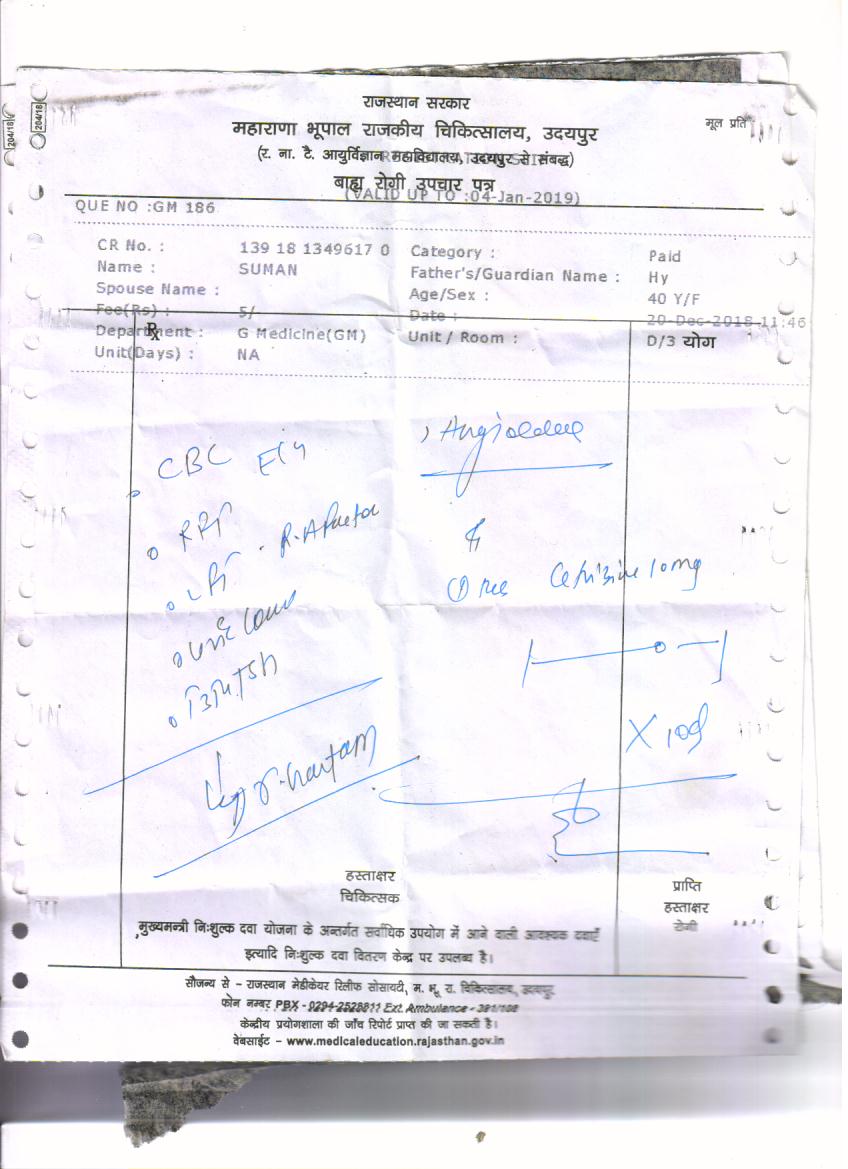 राजस्थान सरकार
महाराणा भूपाल राजकीय चिकित्सालय, उदयपुर
मूल प्रति
(र. ना. टै. आयुर्विज्ञान महाविद्यालय, उदयपुर से संबद्ध)
बाह्य रोगी उपचार पत्र
(VALID UP TO :04-Jan-2019)
QUE NO :GM 186
CR No. : 139 18 1349617 0 Category : Paid
Name : SUMAN Father's/Guardian Name : Hy
Spouse Name : Age/Sex : 40 Y/F
Fee(Rs) : 5/ Date : 20-Dec-2018 11:46
Rx
Department : G Medicine(GM) Unit / Room : D/3 योग
Unit(Days) : NA
CBC
RFT R.A Factor
LFT
Cetrizine 10mg
हस्ताक्षर
चिकित्सक
प्राप्ति
हस्ताक्षर
रोगी
मुख्यमन्त्री निःशुल्क दवा योजना के अन्तर्गत सर्वाधिक उपयोग में आने वाली आवश्यक दवाएँ
इत्यादि निःशुल्क दवा वितरण केन्द्र पर उपलब्ध है।
सौजन्य से - राजस्थान मेडीकेयर रिलीफ सोसायटी, म. भू. रा. चिकित्सालय, उदयपुर
फोन नम्बर PBX - 0294-2528811 Ext. Ambulance -
केन्द्रीय प्रयोगशाला की जाँच रिपोर्ट प्राप्त की जा सकती है।
वेबसाईट - www.medicaleducation.rajasthan.gov.in
204/18
204/18